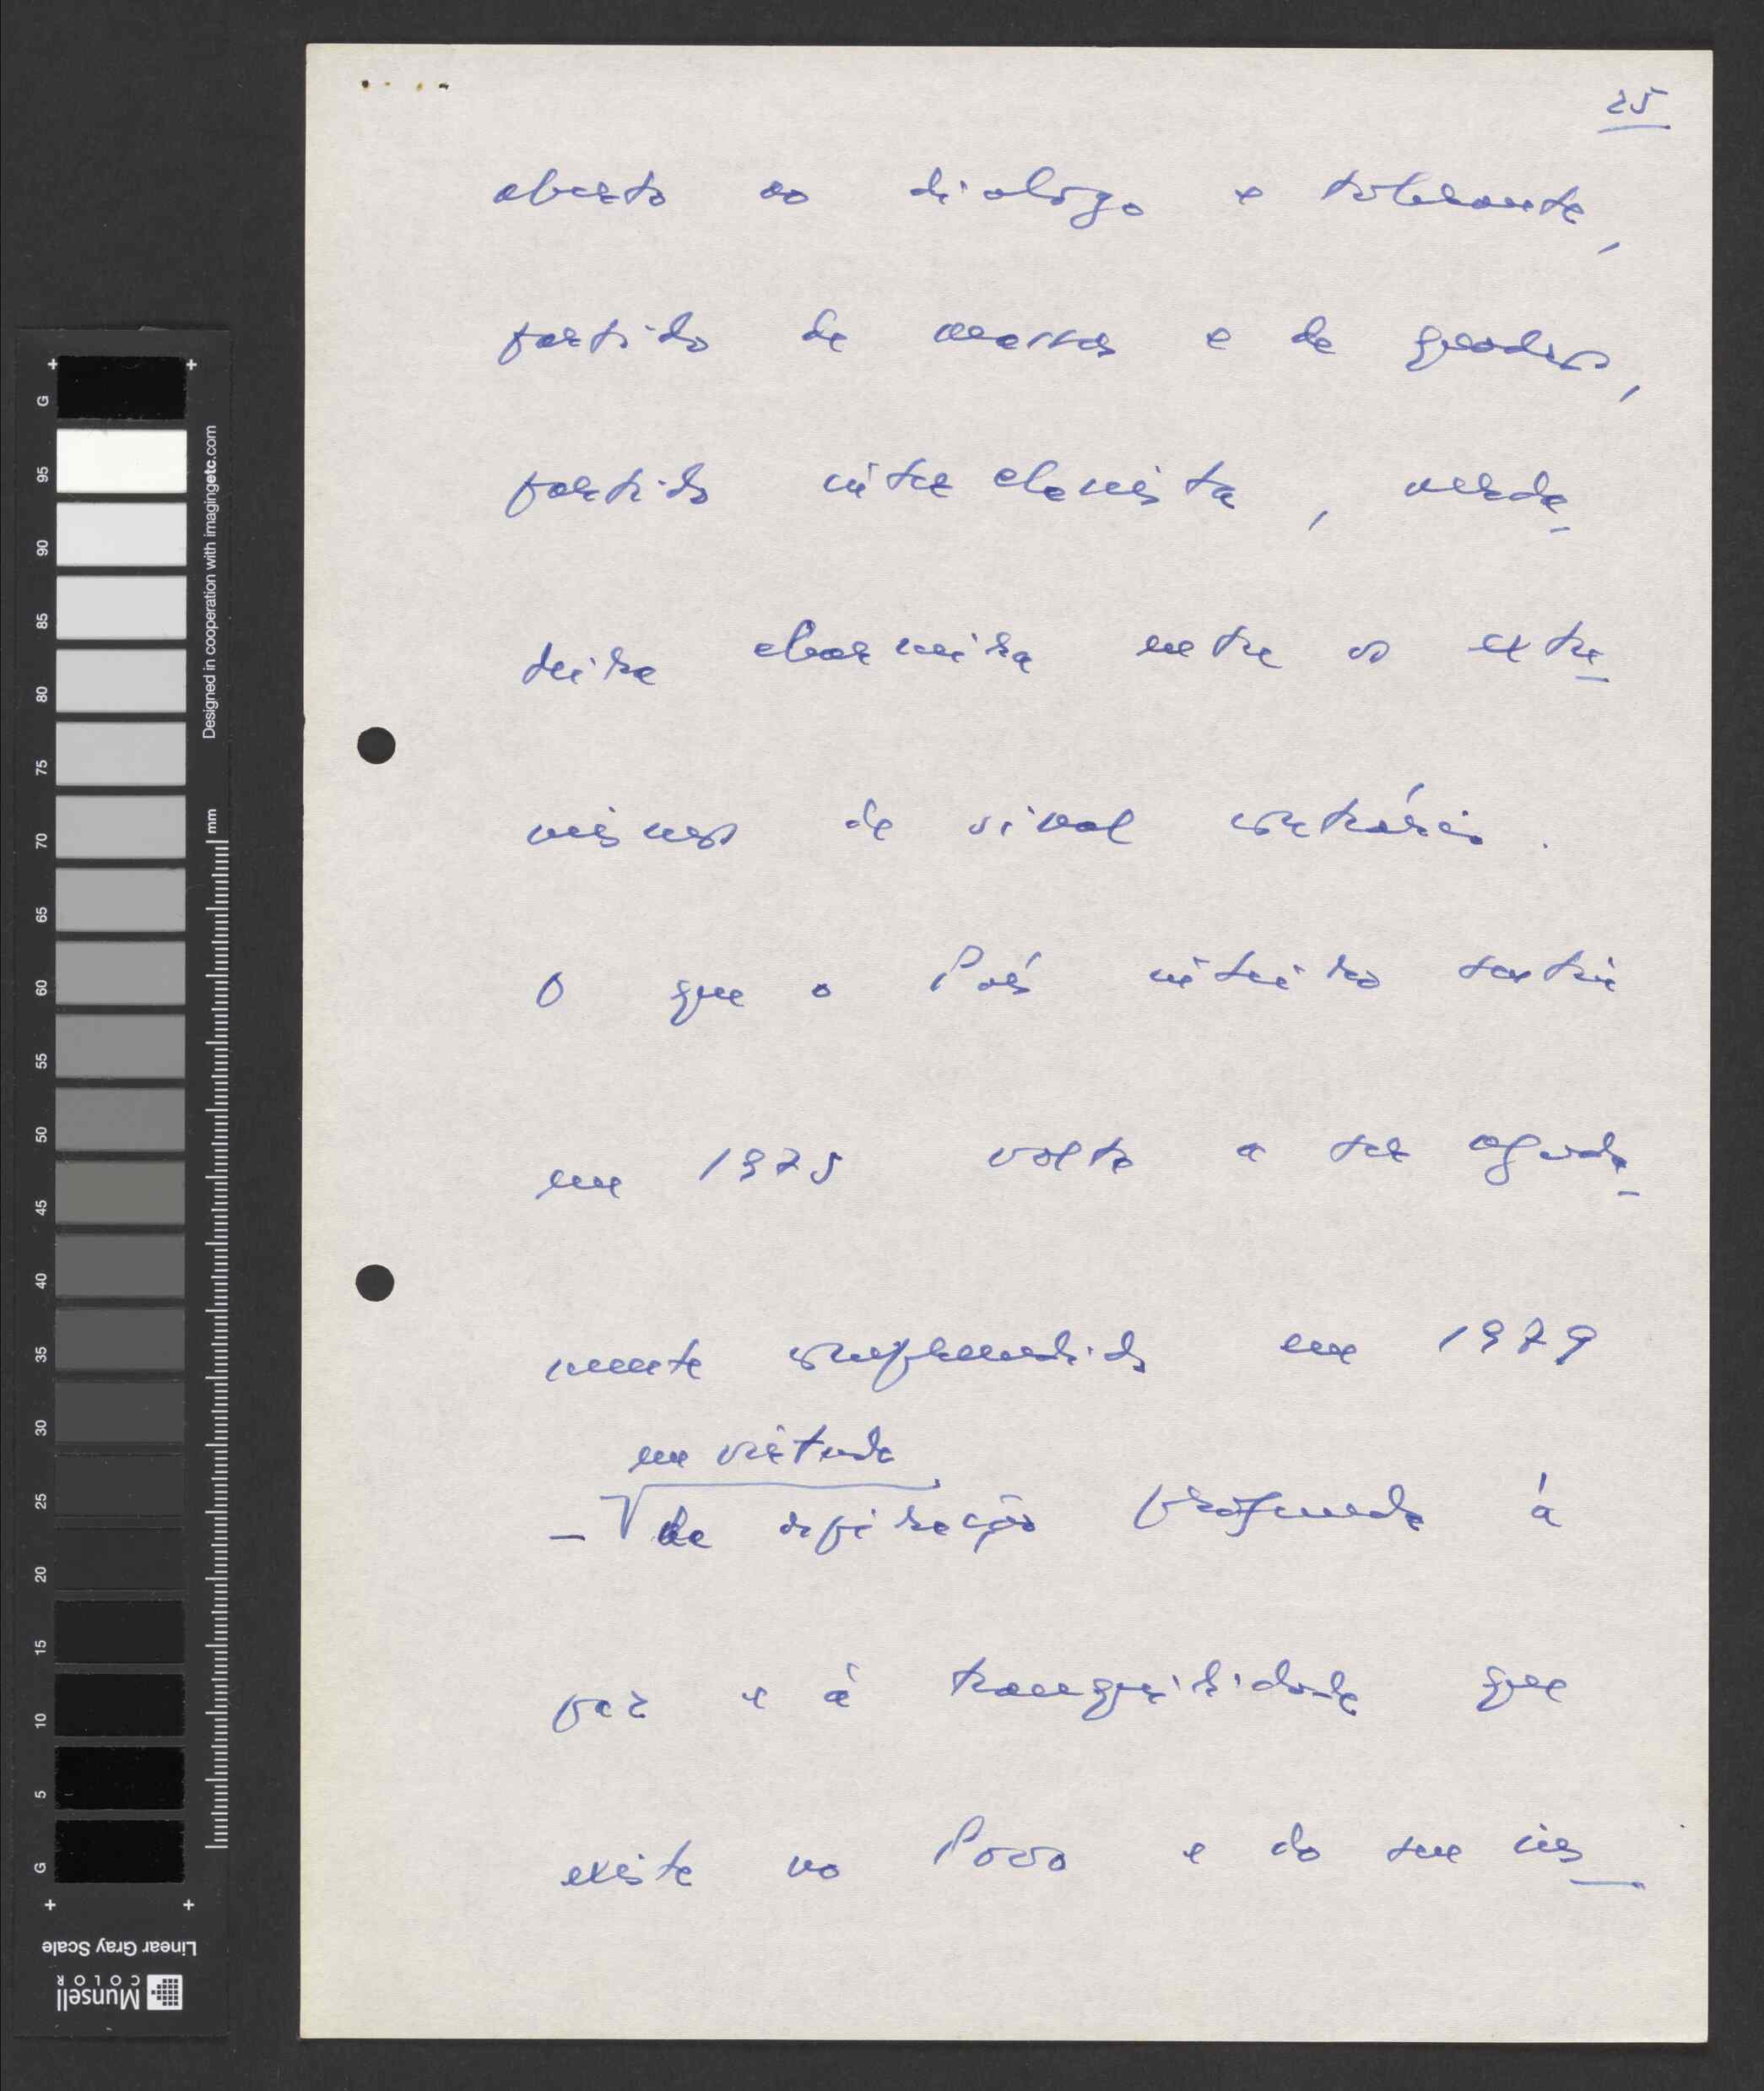 25
aberto ao dialogo e tolerante,
partido de massas e de quadros,
partido interclassista, verda-
deira charneira entre os extre-
mismos de sinal contrário.
O que o País inteiro sentiu
em 1975 volta a ser aguda-
mente compreendido em 1979
em virtude
- da aspiração profunda à
paz e à tranquilidade que
existe no Povo e do seu ins-
G
95
90
85
80
75
70
65
60
55
50
45
40
35
30
25
20
15
10
5
G
mm
Designed in cooperation with imagingetc.com
Linear Gray Scale
Munsell
COLOR